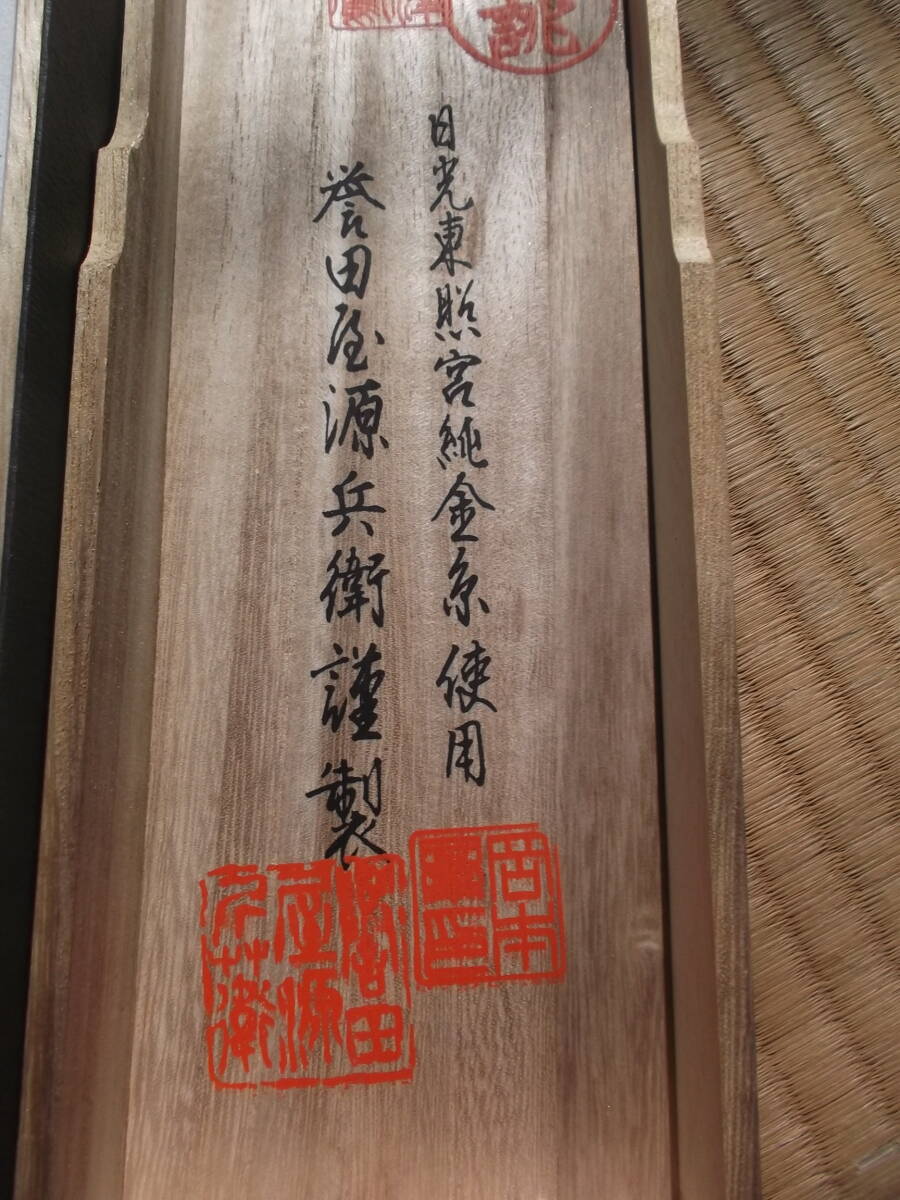 誂
日光東照宮純金糸使用
誉田屋源兵衛謹製
誉田
屋源
兵衛